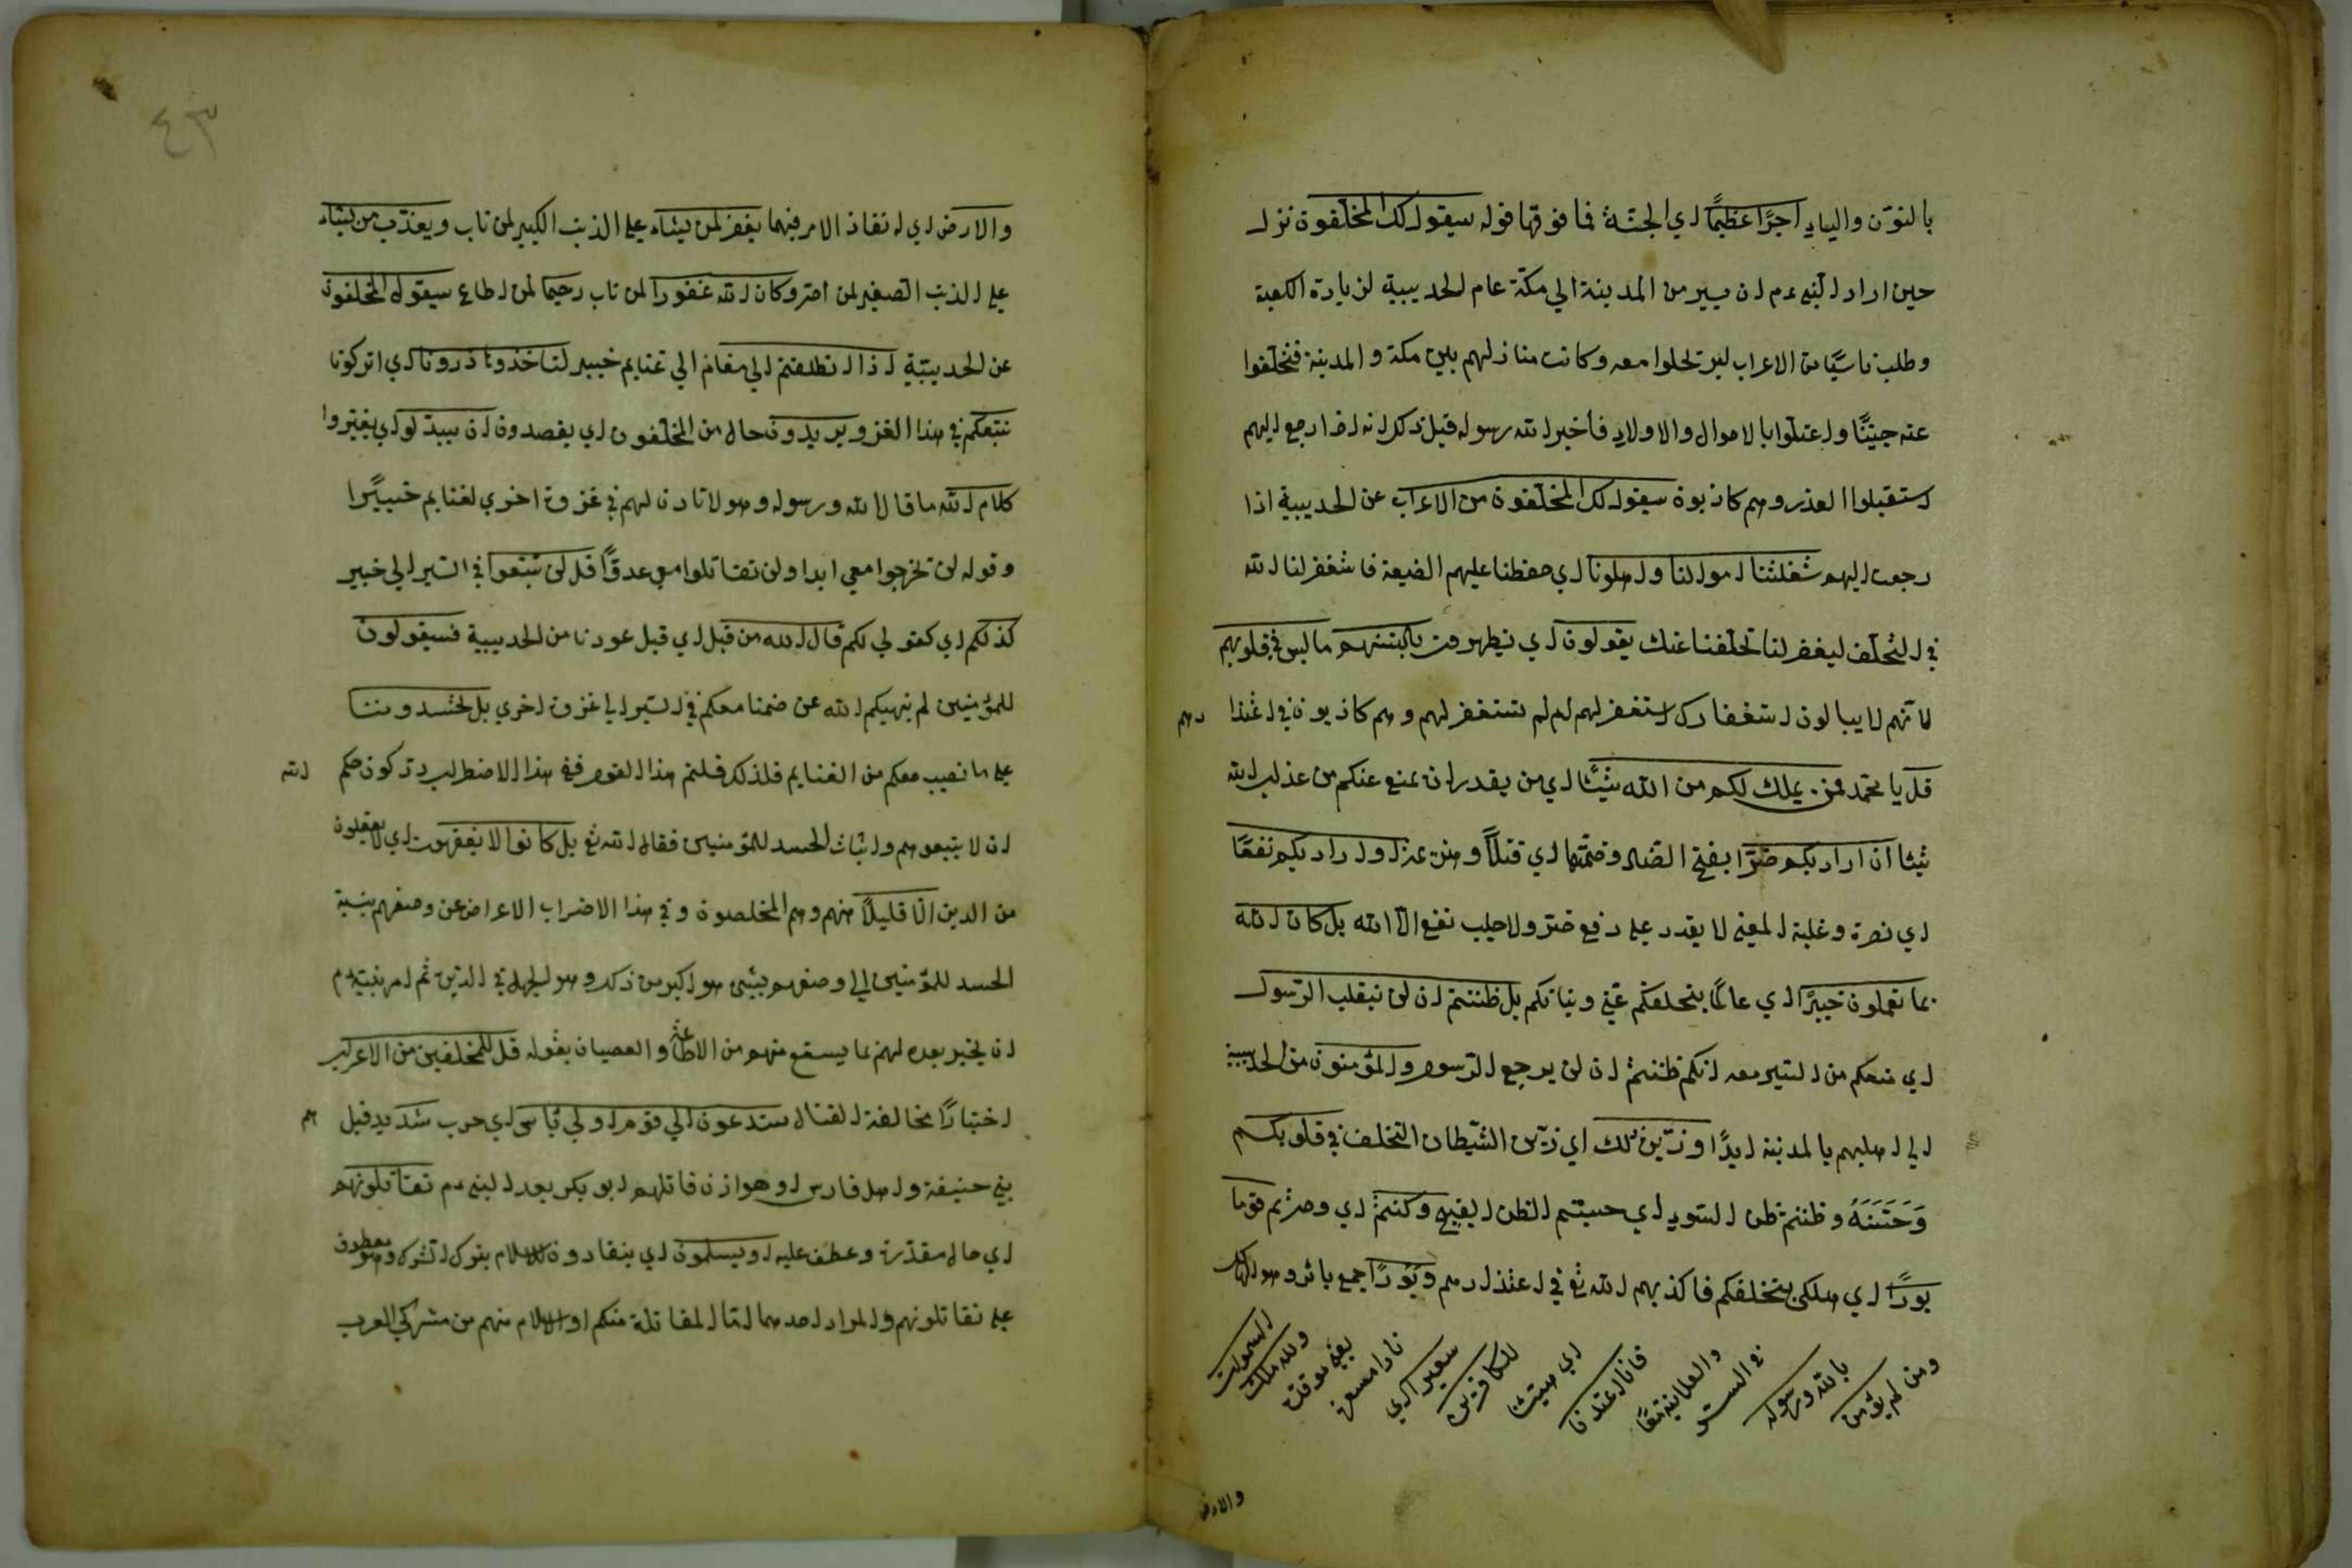 بالنون والياء اجرًا عظيمًا اي الجنّة فما فوقها قوله سيقول لك المخلّفون نزل
حين اراد النبي عم ان يسير من المدينة الي مكّة عام الحديبية لزيارة الكعبة
وطلب ناسًا من الاعراب ليرتحلوا معه وكانت منازلهم بين مكة والمدينة فتخلّفوا
عنه جبنًا واعتلّوا بالاموال والاولاد فأخبر الله رسوله قبل ذكر انه اذا رجع اليهم
استقبلوا العذر وهم كاذبون سيقول لك المخلّفون من الاعراب عن الحديبية اذا
رجعت اليهم شغلتنا اموالنا واهلونا اي حفظنا عليهم الضيعة فاستغفر لنا الله
في التخلّف ليغفر لنا تخلّفنا عنك يقولون اي يظهرون بالسنتهم ما ليس في قلوبهم
لانّهم لا يبالون استغفارك استغفر لهم ام لم تستغفر لهم وهم كاذبون في اعتذا رهم
قل يا محمّد فمن يملك لكم من الله شيئًا اي من يقدر ان يمنع عنكم من عذاب الله
شيئا ان اراد بكم ضرّا بفتح الضاد وضمّها اي قتلًا وهزيمة او اراد بكم نفعًا
اي نصرة وغلبة المعني لا يقدر علي دفع ضرّ ولا جلب نفع الّا الله بل كان الله
بما تعملون خبيرًا اي عالمًا بتخلفكم عنّي ونياتكم بل ظننتم ان لن ينقلب الرّسول
اي منعكم من السير معه انكم ظننتم ان لن يرجع الرّسول والمؤمنون من الحديبية
الي اهليهم بالمدينة ابدًا وزيّن ذلك اي زيّن الشيطان التخلف في قلوبكم
وَحَسَّنَهُ وظننتم ظن السوء اي حسبتم الظن القبيح وكنتم اي وصرتم قوما
بورًا اي هلكي بتخلفكم فاكذبهم الله تع في اعتذارهم وبُورًا جمع بائر وهو الهالك
ومن لم يؤمن
بالله ورسوله
في السر
والعلانية معًا
فانا اعتدنا
اي هيئنا
للكافرين
سعيرا اي
نارا مسعرة
يعني موقدة
ولله ملك
السموات
والارض
٤٣
والارض اي له نفاذ الامر فيهما يغفر لمن يشاء علي الذنب الكبير لمن تاب ويعذّب من يشاء
علي الذنب الصغير لمن اصر وكان الله غفورا لمن تاب رحيما لمن اطاع سيقول المخلفون
عن الحديبيّة اذا انطلقتم الي مغانم الي غنايم خيبر لتأخذوها ذرونا اي اتركونا
نتبعكم في هذا الغزو يريدون حال من المخلّفون اي يقصدون ان يبدّلوا اي يغيّروا
كلام الله ما قال الله ورسوله وهو لا تأذن لهم في غزوة اخري لغنايم خيبرًا
وقوله لن تخرجوا معي ابدا ولن تقاتلوا معي عدوًّا قل لن تتبعوا في السير الي خيبر
كذلكم اي كقولي لكم قال الله من قبل اي قبل عودنا من الحديبية فسيقولون
للمؤمنين لم ينهيكم الله عن ضمنا معكم في السير الي غزوة اخري بل تحسدوننا
علي ما نصيب معكم من الغنايم فلذلك قلتم هذا القول ففي هذا الاضطراب تركون حكم الله
ان لا يتبعوهم واثبات الحسد للمؤمنين فقال الله تع بل كانوا لا يفقهون اي لا يعقلون
من الدين الّا قليلًا منهم وهم المخلصون وفي هذا الاضراب الاعراض عن وصفهم بنسبة
الحسد للمؤمنين الي وصفهم بشئ هو اكبر من ذكر وهو الجهل في الدين ثم امر نبيّه عم
ان يخبر بعده لهم بما يسقع منهم من الاطاعة والعصيان بقوله قل للمخلفين من الاعراب
اختبارًا بمخالفة القتال ستدعون الي قوم اولي بأس اي حرب شديد قيل هم
بني حنيفة واهل فارس او هوازن قاتلهم ابو بكر بعد النبي عم تقاتلونهم
اي حال مقدّرة وعطف عليه او يسلمون اي ينقادون للاسلام بترك الشرك وهو معطوف
علي تقاتلونهم والمراد احدهما امّا المقاتلة منكم او الاسلام منهم من مشركي العرب